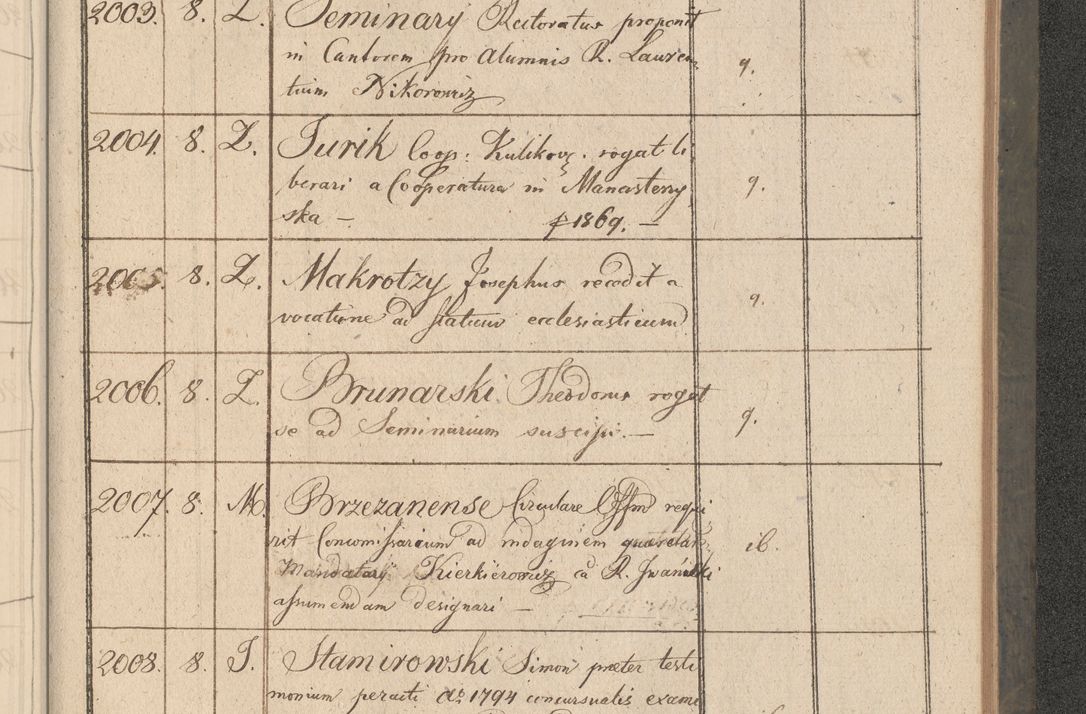 2003. 8. L. Seminary Rectoratus proponit
in Cantorem pro Alumnis R. Lauren
tium Nikorowicz q.
2004. 8. L. Jurik Coop: Kulikov. rogat li
berari a Cooperatura in Manastery
ska — f 1869. — q.
2005. 8. L. Makrotzy Josephus recedit a
vocatione ad statum ecclesiasticum q.
2006. 8. L. Brunarski Theodorus rogat
se ad Seminarium suscipi. — q.
2007. 8. M. Brzezanense Circulare Offm requi
rit Concomissarium ad indaginem querelar
Mandatary Kierkierowicz ca R. Iwański ib.
assumendam designari —
2008. 8. J. Stamirowski Simon praeter testi
monium peracti Ao 1794 concursualis exami